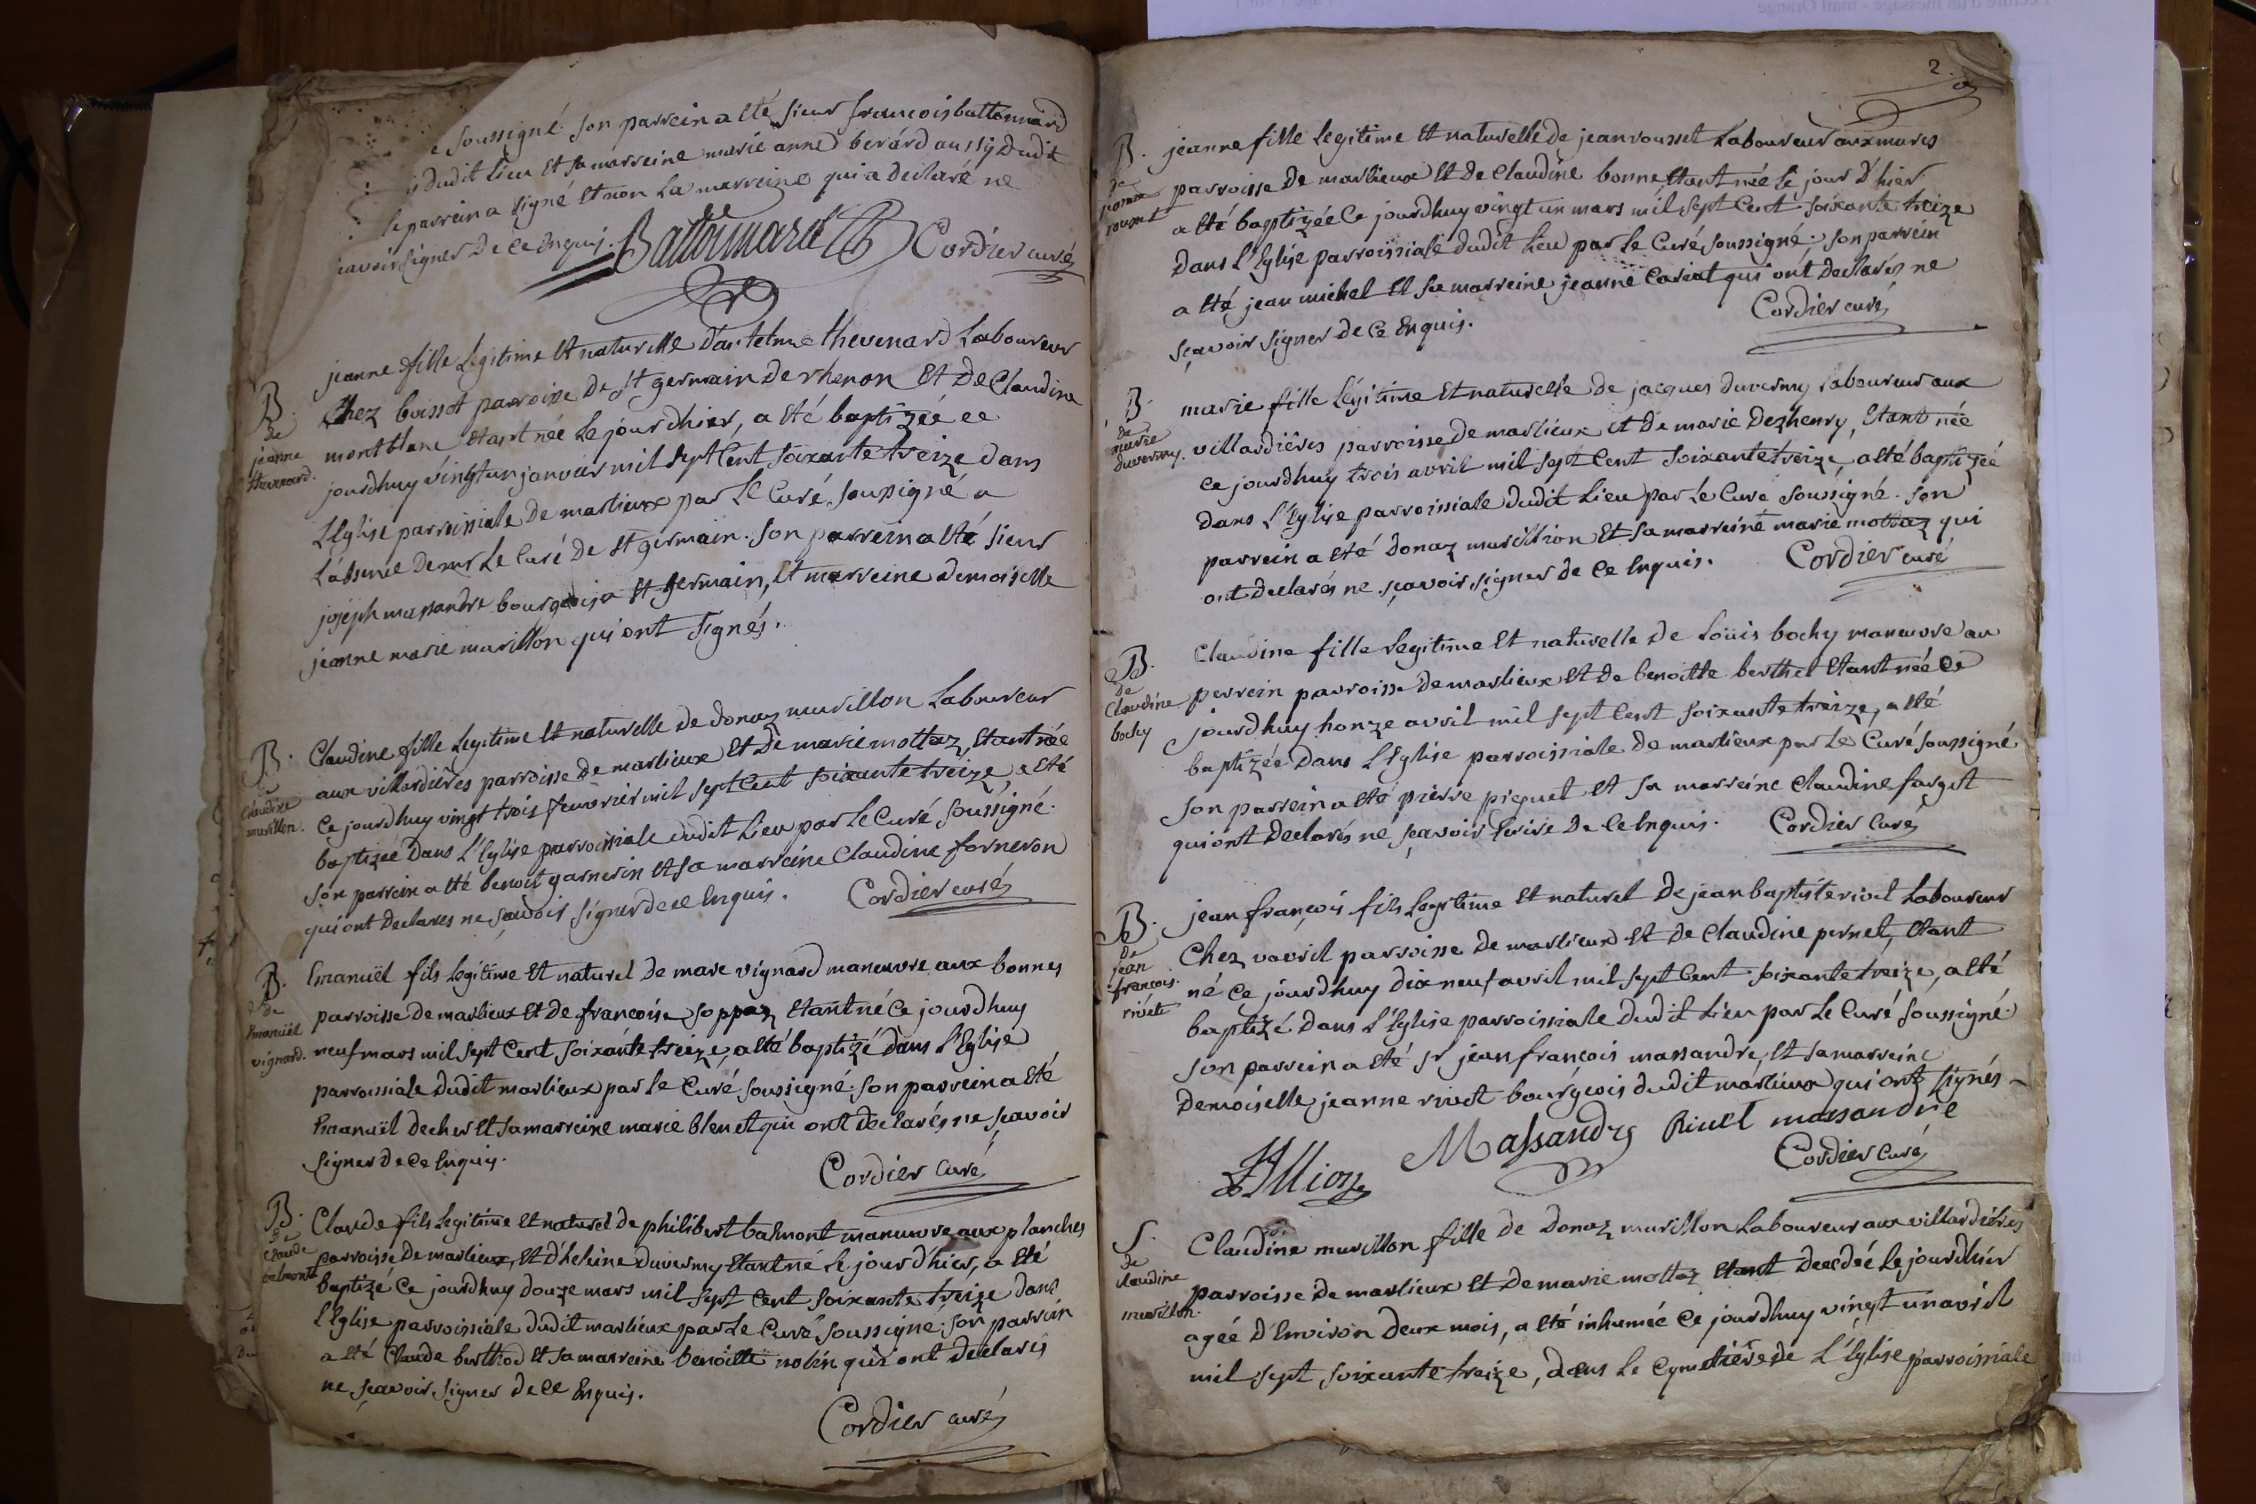 e soussigné. son parrein a eté sieur francois battonnard
dudit lieu et sa marreine marie anne berard aussÿ dudit
le parrein a signé et non la marreine qui a declaré ne
scavoir signer de ce enquis. Battonnard Cordier curé
jeanne fille legitime et naturelle d'antelme thevenard laboureur
chez buisset parroisse de st germain de rhenon et de Claudine
montblanc etant née le jour d'hier, a eté baptizée ce
jourdhuy vingt un janvier mil sept cent soixante treize dans
L'Eglise parroissiale de marlieux par le Curé soussigné a
l'absence de mr le Curé de st germain. son parrein a eté sieur
joseph massandre bourgeois a st germain, et marreine demoiselle
jeanne marie murillon qui ont signés.
B.
de
jeanne
thevenard.
Claudine fille legitime et naturelle de donaz murillon laboureur
aux villardiêres parroisse de marlieux et de marie mottaz, etant née
ce jourdhuy vingt trois fevvrier mil sept cent soixante treize a eté
baptizée dans l'Eglise parroissiale dudit lieu par le Curé soussigné.
son parrein a eté benoit garnerin et sa marreine Claudine forneron
qui ont declares ne sçavoir signer de ce enquis. Cordier curé
B.
de
claudine
murillon.
Emanuël fils legitime et naturel de marc vignard maneuvre aux bonnes
parroisse de marlieux et de françoise soppaz etant né ce jourdhuy
neuf mars mil sept cent soixante treize, a eté baptizé dans l'Eglise
parroissiale dudit marlieux par le Curé soussigné. son parrein a eté
Emanuël decher et sa marreine marie blenet qui ont declarés ne sçavoir
signer de ce enquis.
Cordier curé
B.
de
Emanuël
vignard.
Claude fils legitime et naturel de philibert balmont maneuvre aux planches
parroisse de marlieux, et d'heleine duvermy etant né le jour d'hier, a eté
baptizé ce jourdhuy douze mars mil sept cent soixante treize dans
l'Eglise parroissiale dudit marlieux par le Curé soussigné. son parrein
a eté Claude berthod et sa marreine benoitte robin qui ont declarés
ne sçavoir signer de ce enquis.
Cordier curé
B.
de
claude
balmont
2.
B.
de
jeanne
rousset
jeanne fille legitime et naturelle de jean rousset laboureur aux mures
parroisse de marlieux et de Claudine bonne etant née le jour d'hier
a eté baptizée ce jourdhuy vingt un mars mil sept cent soixante treize
dans l'Eglise parroissiale dudit lieu par le Curé soussigné. son parrein
a eté jean michel et sa marreine jeanne Cariat qui ont declarés ne
sçavoir signer de ce enquis. Cordier curé
B.
de
marie
duvermy.
marie fille legitime et naturelle de jacques duvermy laboureur aux
villardiêres parroisse de marlieux et de marie dezhenry, etant née
ce jourdhuy trois avril mil sept cent soixante treize, a eté baptizée
dans l'Eglise parroissiale dudit lieu par le Curé soussigné. son
parrein a eté donaz murillion et sa marreine marie mottaz qui
ont declarés ne sçavoir signer de ce enquis. Cordier curé
B.
de
Claudine
bochy
Claudine fille legitime et naturelle de Loüis bochy maneuvre au
perrein parroisse de marlieux et de benoitte berthet etant née ce
jourdhuy honze avril mil sept cent soixante treize, a eté
baptizée dans l'Eglise parroissiale de marlieux par le Curé soussigné
son parrein a eté pierre piquet et sa marreine Claudine farget
qui ont declarés ne sçavoir Ecrire de ce enquis. Cordier Curé
B.
de
jean
francois
rivet
jean françois fils legitime et naturel de jean baptiste rivet laboureur
chez vavril parroisse de marlieux et de Claudine pernet, etant
né ce jourdhuy dix neuf avril mil sept cent soixante treize, a eté
baptizé dans l'Eglise parroissiale dudit lieu par le Curé soussigné.
son parrein a eté sr jean françois massandre, et sa marreine
demoiselle jeanne rivet bourgeois dudit marlieux qui ont signés
Massandre Rivet massandre
Cordier Curé
S.
de
claudine
murillon.
Claudine murillon fille de donaz murillon laboureur aux villardiêres
parroisse de marlieux et de marie mottaz etant decedée le jourdhier
agée d'Environ deux mois, a eté inhumée ce jourdhuy vingt un avril
mil sept soixante treize, dans le cymetiêre de l'Eglise parroissiale